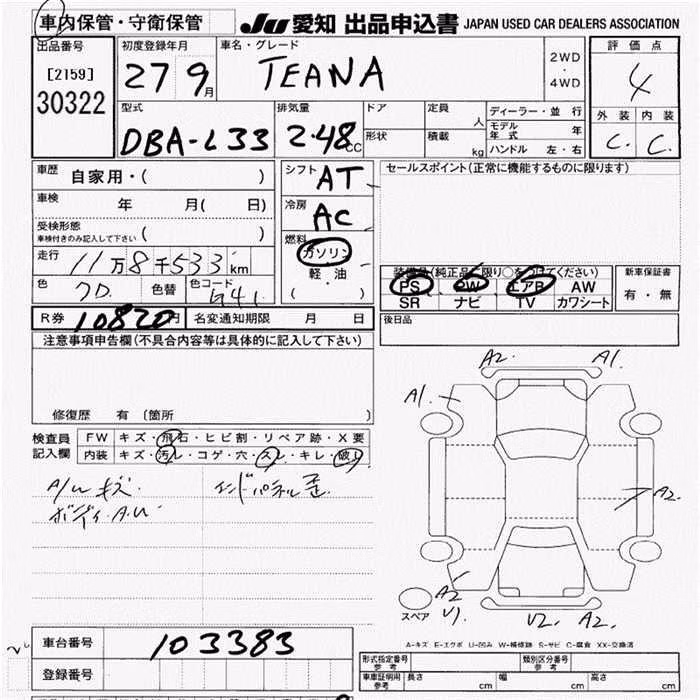 車内保管・守衛保管 JU 愛知 出品申込書 JAPAN USED CAR DEALERS ASSOCIATION
出品番号 初度登録年月 車名・グレード 2WD ・ 4WD 評価点
[2159] 27 9月 TEANA 4
30322 型式 排気量 ドア 定員 人 ディーラー・並行 外装 内装
DBA-L33 2.48 CC 形状 積載 kg モデル年式 年 C. C.
ハンドル 左・右
車歴 自家用・( ) シフト AT セールスポイント(正常に機能するものに限ります)
車検 年 月( 日) 冷房 AC
受検形態 車検付きのみ記入して下さい( ) 燃料 ガソリン
走行 11万8千533km 軽・油 装備品(純正品に限り○をつけてください) 新車保証書
色 色替 色コード G41 ( ) PS PW エアB AW 有・無
SR ナビ TV カワシート
R券 10820円 名変通知期限 月 日 後日品
注意事項申告欄(不具合内容等は具体的に記入して下さい)
A2. A1.
A1.
修復歴 有 〔箇所
検査員 FW キズ・飛石・ヒビ割・リペア跡・X要
記入欄 内装 キズ・汚レ・コゲ・穴・スレ・キレ・破レ
A/W キズ.
ボディ.A.U
A2.
A2
スペア U1. U2. A2.
A-キズ E-エクボ U-凹み W-補修跡 S-サビ C-腐食 XX-交換済
車台番号 103383
登録番号
形式指定番号 参考 類別区分番号 参考
車庫証明用 参考 長さ cm 幅 cm 高さ cm